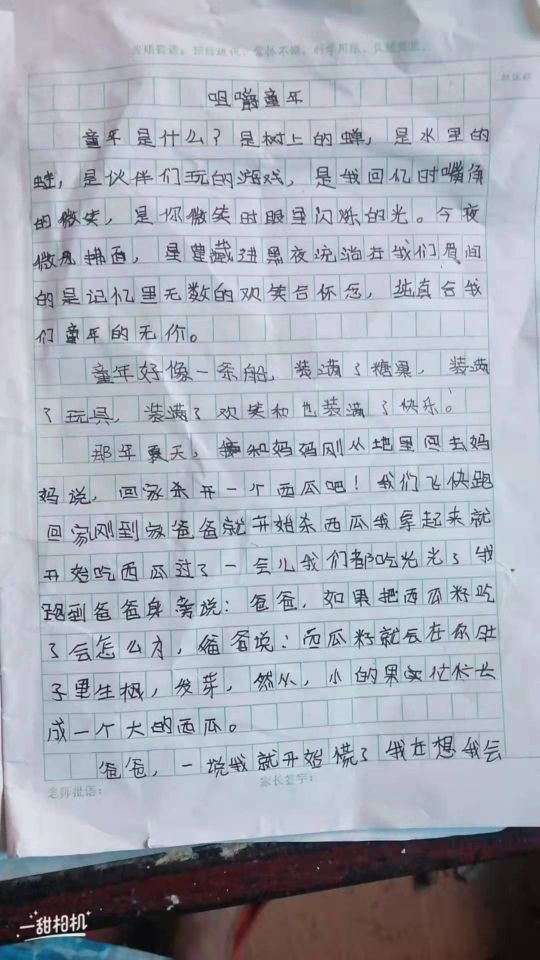 咀嚼童年
童年是什么？是树上的蝉，是水里的
蛙，是伙伴们玩的游戏，是我回忆时嘴角
的微笑，是你微笑时眼里闪烁的光。今夜
微风拂面，星星藏进黑夜流淌在我们眉间
的是记忆里无数的欢笑合怀念，纯真合我
们童年的无价。
童年好像一条船，装满了糖果，装满
了玩具，装满了欢笑和也装满了快乐！
那年夏天，和妈妈刚从地里回去妈
妈说，回家杀开一个西瓜吧！我们飞快跑
回家刚到家爸爸就开始杀西瓜我拿起来就
开始吃西瓜过了一会儿我们都吃光光了我
跑到爸爸身旁说：爸爸，如果把西瓜籽吃
了会怎么办，爸爸说：西瓜籽就会在你肚
子里生根，发芽，然从，小的果实忙忙长
成一个大的西瓜。
爸爸，一说我就开始慌了我在想我会
老师批语： 家长签字：
一甜相机